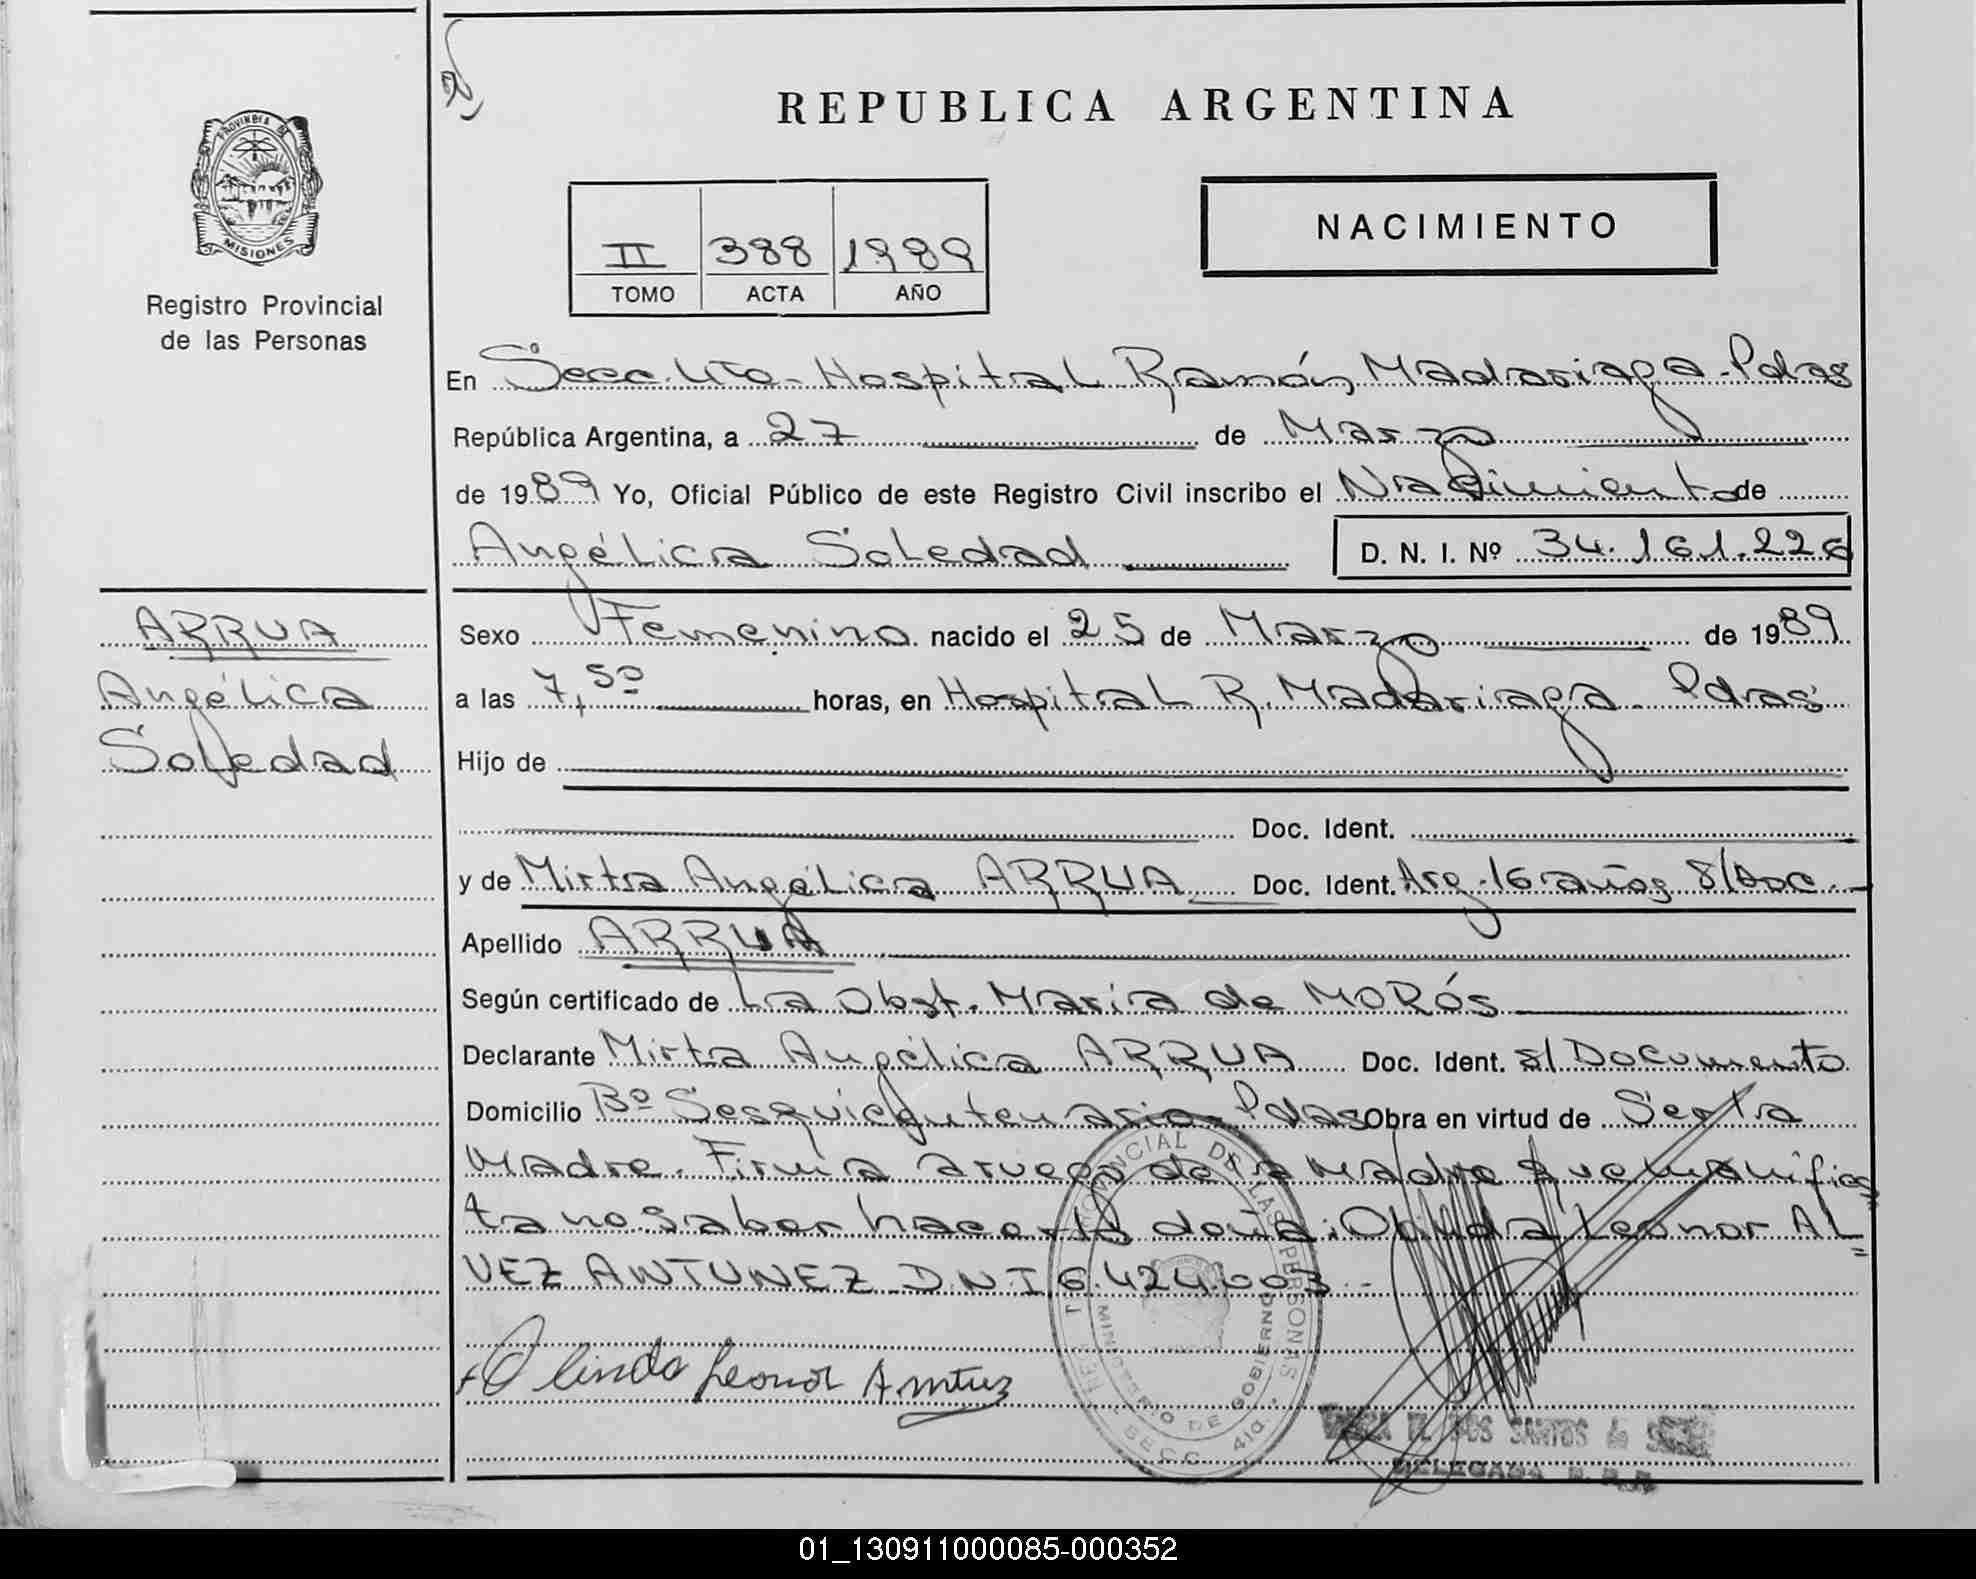 REPUBLICA ARGENTINA
PROVINCIA DE
MISIONES
Registro Provincial
de las Personas
II 388 1989
TOMO ACTA AÑO
NACIMIENTO
En Secc. 4ta. Hospital Ramón Madariaga - Pdas
República Argentina, a 27 de Marzo
de 1989 Yo, Oficial Público de este Registro Civil inscribo el Nacimiento de
Angélica Soledad D. N. I. Nº 34.161.226
ARRUA
Angélica
Soledad
Sexo Femenino nacido el 25 de Marzo de 1989
a las 7,50 horas, en Hospital R. Madariaga - Pdas
Hijo de
Doc. Ident.
y de Mirta Angélica ARRUA Doc. Ident. Arg. 16 años S/Doc.
Apellido ARRUA
Según certificado de La Obst. María de MORÓS
Declarante Mirta Angélica ARRUA Doc. Ident. s/Documento
Domicilio Bº Sesquicentenario - Pdas Obra en virtud de Ser la
Madre. Firma a ruego de la Madre que manifies
ta no saber hacerlo doña: Olinda Leonor AL=
VEZ ANTUNEZ D.N.I 6.424.003 -
Olinda Leonor Antunez
PROVINCIAL DE LAS PERSONAS
MINISTERIO DE GOBIERNO
SECC. 4ta.
DOS SANTOS
DELEGADA
01_130911000085-000352